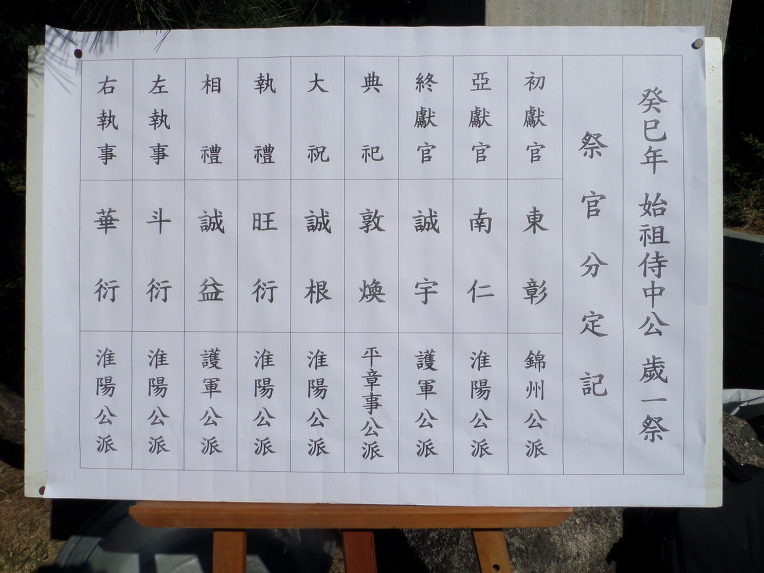 癸巳年 始祖侍中公 歲一祭
祭官分定記
初獻官 東彰 錦州公派
亞獻官 南仁 淮陽公派
終獻官 誠宇 護軍公派
典祀 敦煥 平章事公派
大祝 誠根 淮陽公派
執禮 旺衍 淮陽公派
相禮 誠益 護軍公派
左執事 斗衍 淮陽公派
右執事 華衍 淮陽公派